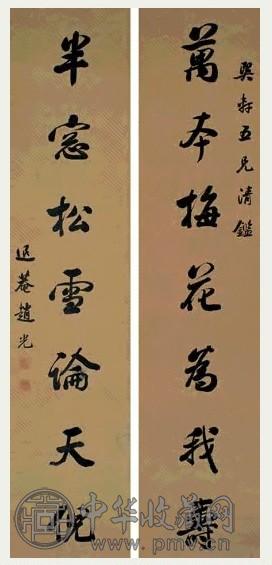 五兄清鑑
萬本梅花為我壽
半窓松雪論天倪
退菴趙光
中华收藏网
www.pmv.cn